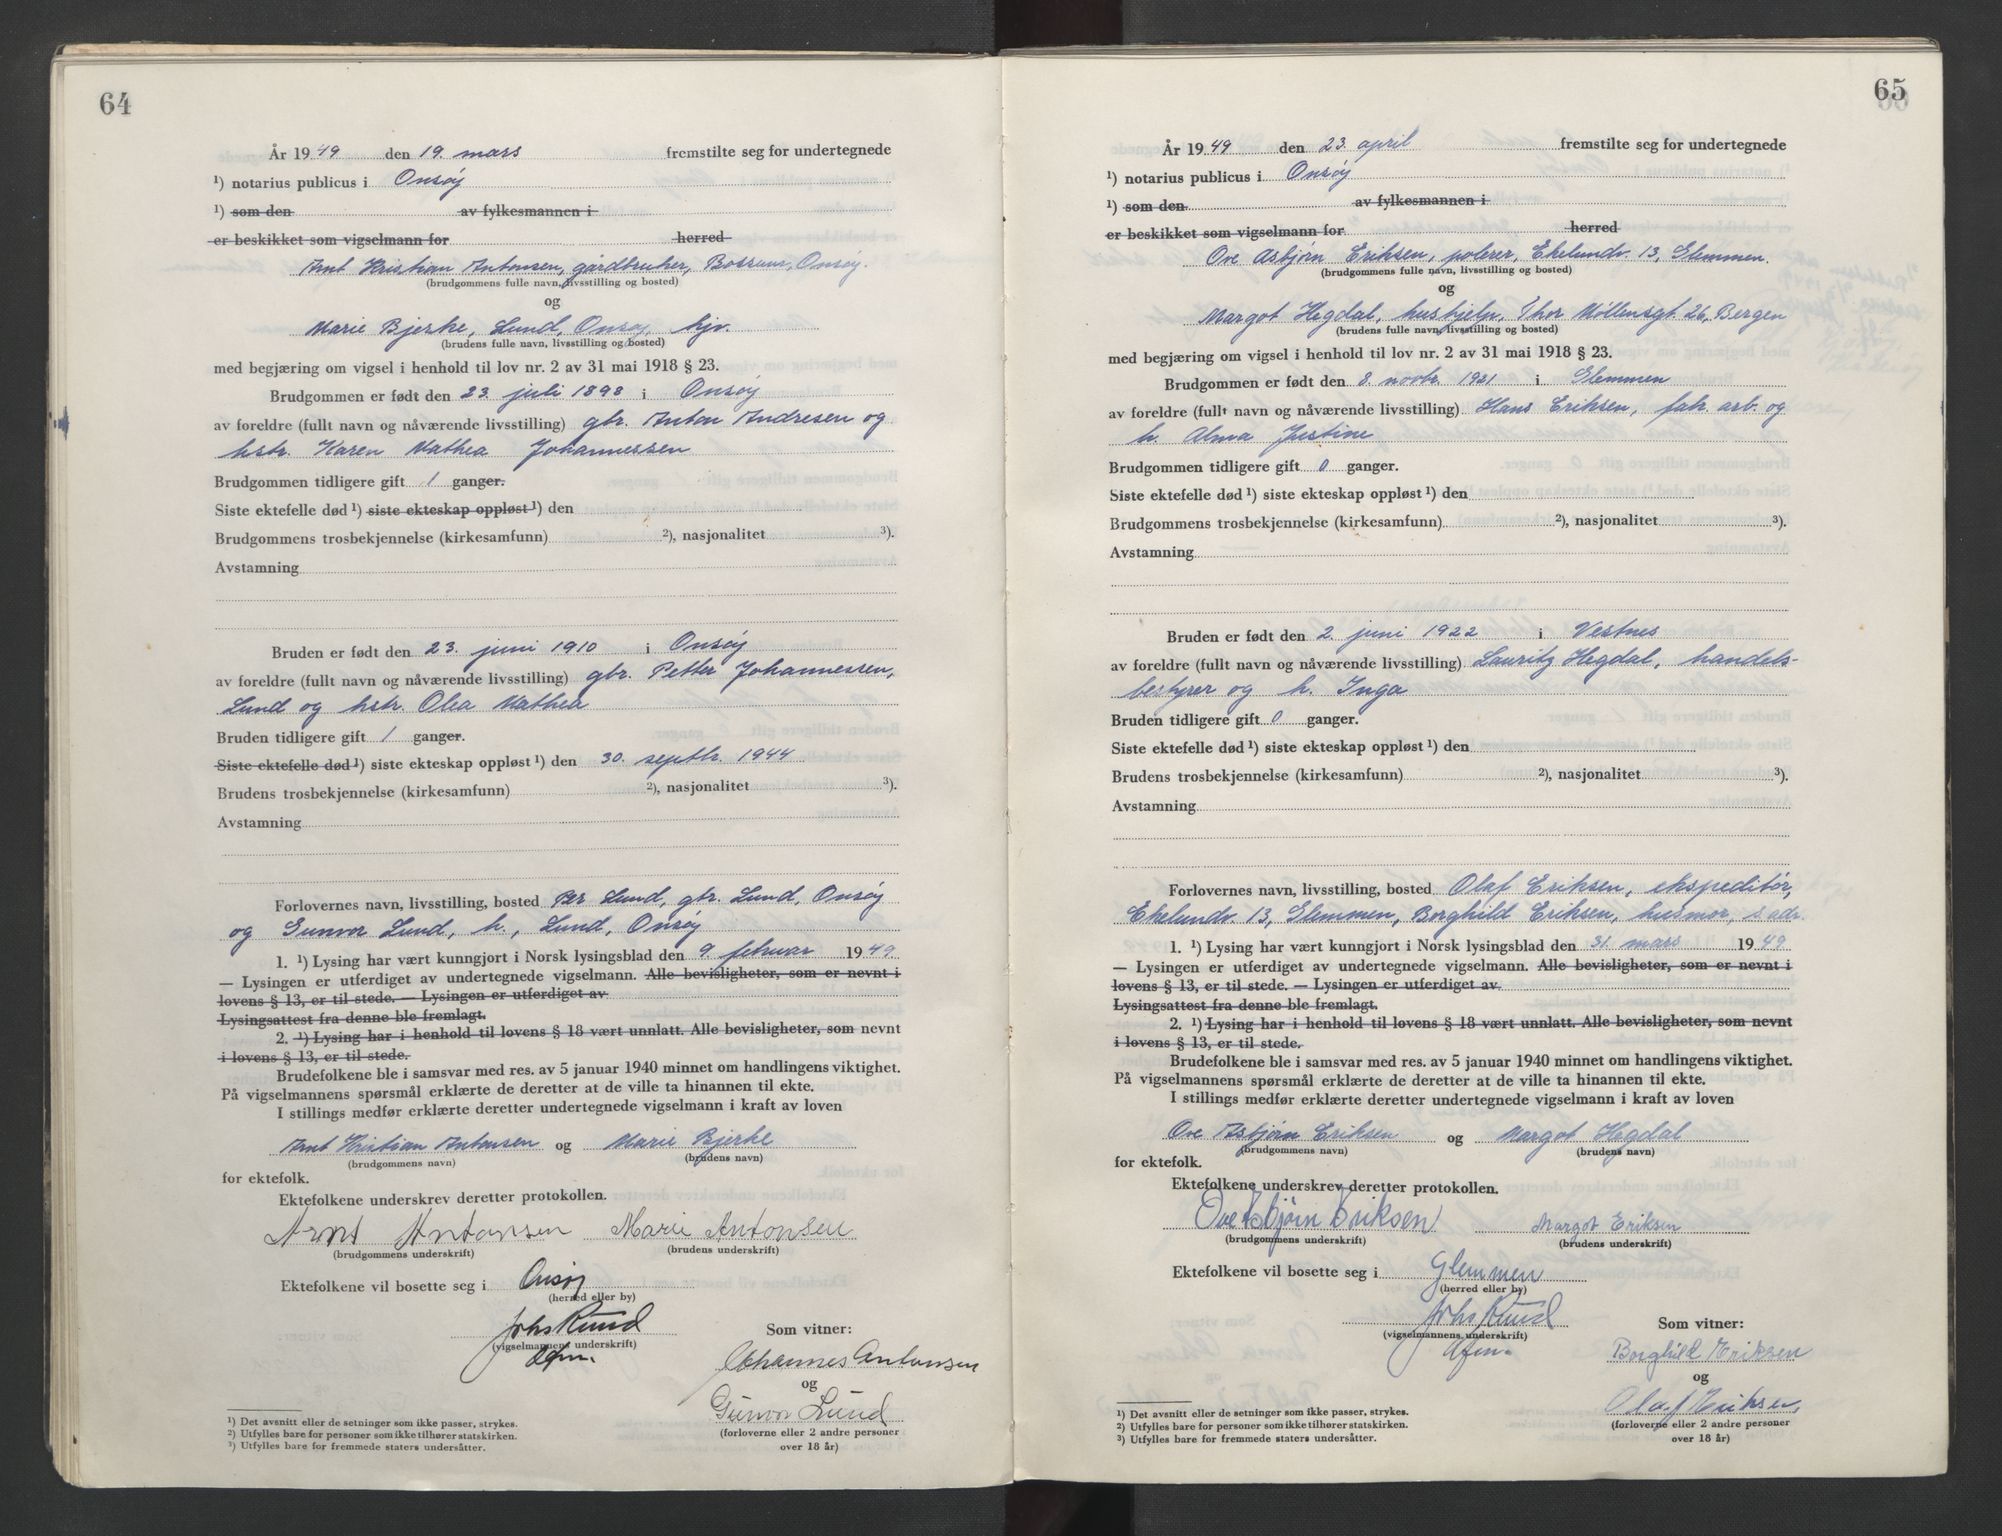 64
År 1949 den 19. mars fremstilte seg for undertegnede
¹) notarius publicus i Onsøy
¹) som den av fylkesmannen i
er beskikket som vigselmann for herred
Arnt Kristian Antonsen, gårdbruker, Bossum, Onsøy.
(brudgommens fulle navn, livsstilling og bosted)
og
Marie Bjerke, Lund, Onsøy, hjv.
(brudens fulle navn, livsstilling og bosted)
med begjæring om vigsel i henhold til lov nr. 2 av 31 mai 1918 § 23.
Brudgommen er født den 23. juli 1898 i Onsøy
av foreldre (fullt navn og nåværende livsstilling) gbr. Anton Andresen og
hstr. Karen Mathea Johannessen
Brudgommen tidligere gift 1 ganger.
Siste ektefelle død ¹) siste ekteskap oppløst ¹) den
Brudgommens trosbekjennelse (kirkesamfunn) ²), nasjonalitet ³).
Avstamning
Bruden er født den 23. juni 1910 i Onsøy
av foreldre (fullt navn og nåværende livsstilling) gbr. Petter Johannessen,
Lund og hstr. Olea Mathea
Bruden tidligere gift 1 ganger.
Siste ektefelle død ¹) siste ekteskap oppløst ¹) den 30. septbr. 1944
Brudens trosbekjennelse (kirkesamfunn) ²), nasjonalitet ³).
Avstamning
Forlovernes navn, livsstilling, bosted Per Lund, gbr. Lund, Onsøy
og Gunvor Lund, h., Lund, Onsøy
1. ¹) Lysing har vært kunngjort i Norsk lysingsblad den 9. februar 1949
— Lysingen er utferdiget av undertegnede vigselmann. Alle bevisligheter, som er nevnt i
lovens § 13, er til stede. — Lysingen er utferdiget av
Lysingsattest fra denne ble fremlagt.
2. ¹) Lysing har i henhold til lovens § 18 vært unnlatt. Alle bevisligheter, som nevnt
i lovens § 13, er til stede.
Brudefolkene ble i samsvar med res. av 5 januar 1940 minnet om handlingens viktighet.
På vigselmannens spørsmål erklærte de deretter at de ville ta hinannen til ekte.
I stillings medfør erklærte deretter undertegnede vigselmann i kraft av loven
Arnt Kristian Antonsen og Marie Bjerke
(brudgommens navn) (brudens navn)
for ektefolk.
Ektefolkene underskrev deretter protokollen.
Arnt Antonsen Marie Antonsen
(brudgommens underskrift) (brudens underskrift)
Ektefolkene vil bosette seg i Onsøy
(herred eller by)
Johs Ruud
(vigselmannens underskrift)
Som vitner:
Johannes Antonsen
og
Gunvor Lund
(forloverne eller 2 andre personer
over 18 år)
¹) Det avsnitt eller de setninger som ikke passer, strykes.
²) Utfylles bare for personer som ikke tilhører statskirken.
³) Utfylles bare for fremmede staters undersåtter.
65
År 1949 den 23. april fremstilte seg for undertegnede
¹) notarius publicus i Onsøy
¹) som den av fylkesmannen i
er beskikket som vigselmann for herred
Ove Asbjørn Eriksen, polerer, Ekelundv. 13, Glemmen.
(brudgommens fulle navn, livsstilling og bosted)
og
Margot Hegdal, hushjelp, Thor Møllensgt. 26, Bergen
(brudens fulle navn, livsstilling og bosted)
med begjæring om vigsel i henhold til lov nr. 2 av 31 mai 1918 § 23.
Brudgommen er født den 8. novbr. 1921 i Glemmen
av foreldre (fullt navn og nåværende livsstilling) Hans Eriksen, fabr. arb. og
h. Alma Justine
Brudgommen tidligere gift 0 ganger.
Siste ektefelle død ¹) siste ekteskap oppløst ¹) den
Brudgommens trosbekjennelse (kirkesamfunn) ²), nasjonalitet ³).
Avstamning
Bruden er født den 2. juni 1922 i Vestnes
av foreldre (fullt navn og nåværende livsstilling) Lauritz Hegdal, handels-
bestyrer og h. Inga
Bruden tidligere gift 0 ganger.
Siste ektefelle død ¹) siste ekteskap oppløst ¹) den
Brudens trosbekjennelse (kirkesamfunn) ²), nasjonalitet ³).
Avstamning
Forlovernes navn, livsstilling, bosted Olaf Eriksen, ekspeditør,
Ekelundv. 13, Glemmen, Borghild Eriksen, husmor, s. adr.
1. ¹) Lysing har vært kunngjort i Norsk lysingsblad den 31. mars 1949
— Lysingen er utferdiget av undertegnede vigselmann. Alle bevisligheter, som er nevnt i
lovens § 13, er til stede. — Lysingen er utferdiget av
Lysingsattest fra denne ble fremlagt.
2. ¹) Lysing har i henhold til lovens § 18 vært unnlatt. Alle bevisligheter, som nevnt
i lovens § 13, er til stede.
Brudefolkene ble i samsvar med res. av 5 januar 1940 minnet om handlingens viktighet.
På vigselmannens spørsmål erklærte de deretter at de ville ta hinannen til ekte.
I stillings medfør erklærte deretter undertegnede vigselmann i kraft av loven
Ove Asbjørn Eriksen og Margot Hegdal
(brudgommens navn) (brudens navn)
for ektefolk.
Ektefolkene underskrev deretter protokollen.
Ove Asbjørn Eriksen Margot Eriksen
(brudgommens underskrift) (brudens underskrift)
Ektefolkene vil bosette seg i Glemmen
(herred eller by)
Johs Ruud
(vigselmannens underskrift)
Som vitner:
Borghild Eriksen
og
Olaf Eriksen
(forloverne eller 2 andre personer
over 18 år)
¹) Det avsnitt eller de setninger som ikke passer, strykes.
²) Utfylles bare for personer som ikke tilhører statskirken.
³) Utfylles bare for fremmede staters undersåtter.